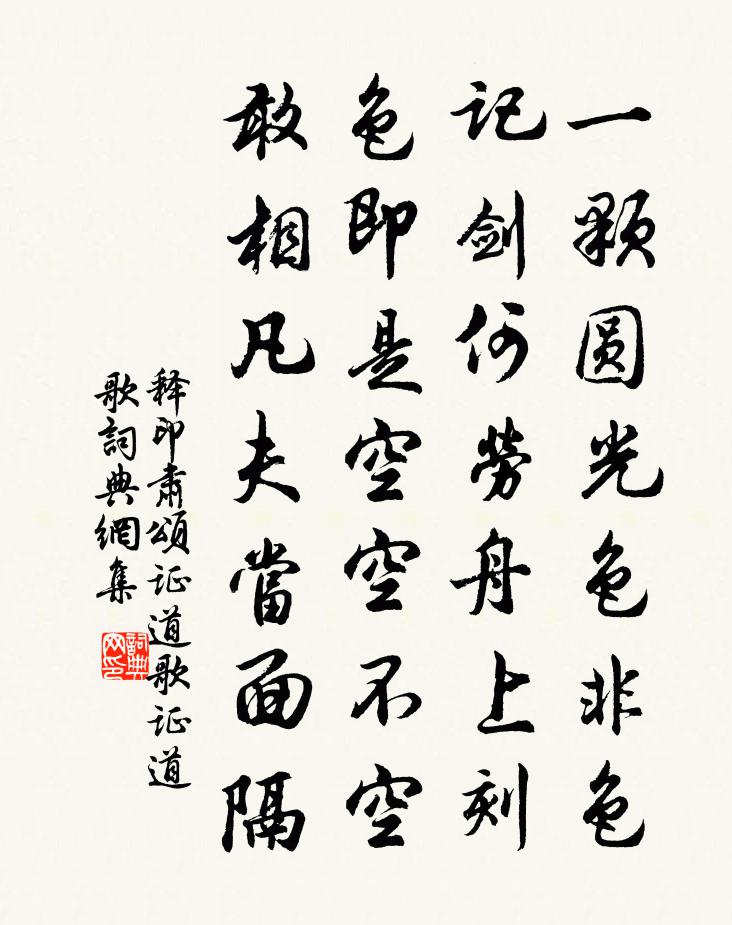 一颗圆光色非色
记剑何劳舟上刻
色即是空空不空
敢相凡夫當面隔
释印肃頌证道歌证道
歌詞典網集
詞典网印